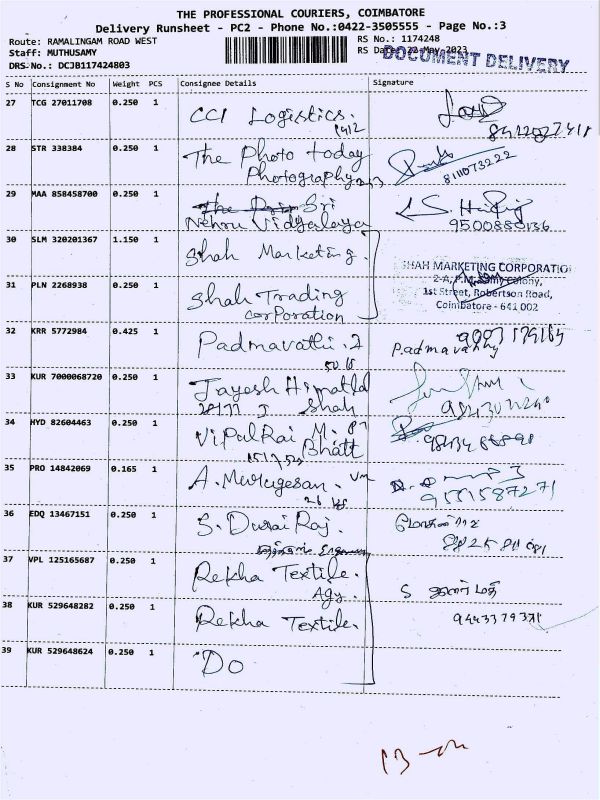 THE PROFESSIONAL COURIERS, COIMBATORE
Delivery Runsheet - PC2 - Phone No.:0422-3505555 - Page No.:3
Route: RAMALINGAM ROAD WEST
RS No.: 1174248
Staff: MUTHUSAMY
RS Date: 22-May-2023
DOCUMENT DELIVERY
DRS No.: DCJB117424803
S No Consignment No Weight PCS Consignee Details Signature
27 TCG 27011708 0.250 1 CCI Logistics.
1412
28 STR 338384 0.250 1 The Photo today
Photography
8111073222
29 MAA 858458700 0.250 1 Sri
Nehru Vidyalaya
9500880136
30 SLM 320201367 1.150 1 Shah Marketing.
SHAH MARKETING CORPORATIO
Colony,
1st Street, Robertson Road,
Coimbatore - 641 002
31 PLN 2268938 0.250 1 Shah Trading
Corporation
32 KRR 5772984 0.425 1 Padmavathi . J
Padmavathy
33 KUR 7000068720 0.250 1 Jayesh Himatlal
Shah
34 HYD 82604463 0.250 1 Vipul Rai M.
Bhatt
35 PRO 14842069 0.165 1 A. Murugesan.
9551587271
36 EDQ 13467151 0.250 1 S. Durai Raj.
37 VPL 125165687 0.250 1 Rekha Textile.
Agy.
38 KUR 529648282 0.250 1 Rekha Textile.
9443379371
39 KUR 529648624 0.250 1 Do